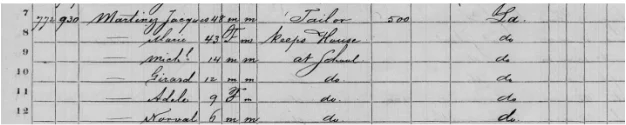 7 772 930 Martinez Jacques 48 m m Tailor 500 La.
8 — Marie 43 F m Keeps House do
9 — Mich! 14 m m at School do
10 — Girard 12 m m do do
11 — Adele 9 F m do. do
12 — Norval 6 m m do do.